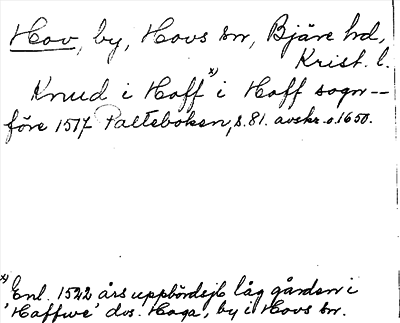 Hov, by, Hovs sn, Bjäre hd,
Krist. l.
Knud i Hoff *) i Hoff sogn --
före 1517 Palteboken, s. 81. avskr. o. 1650.
*) Enl. 1522 års uppbördsjb låg gården i
'Haffwe' dvs. Haga, by i Hovs sn.